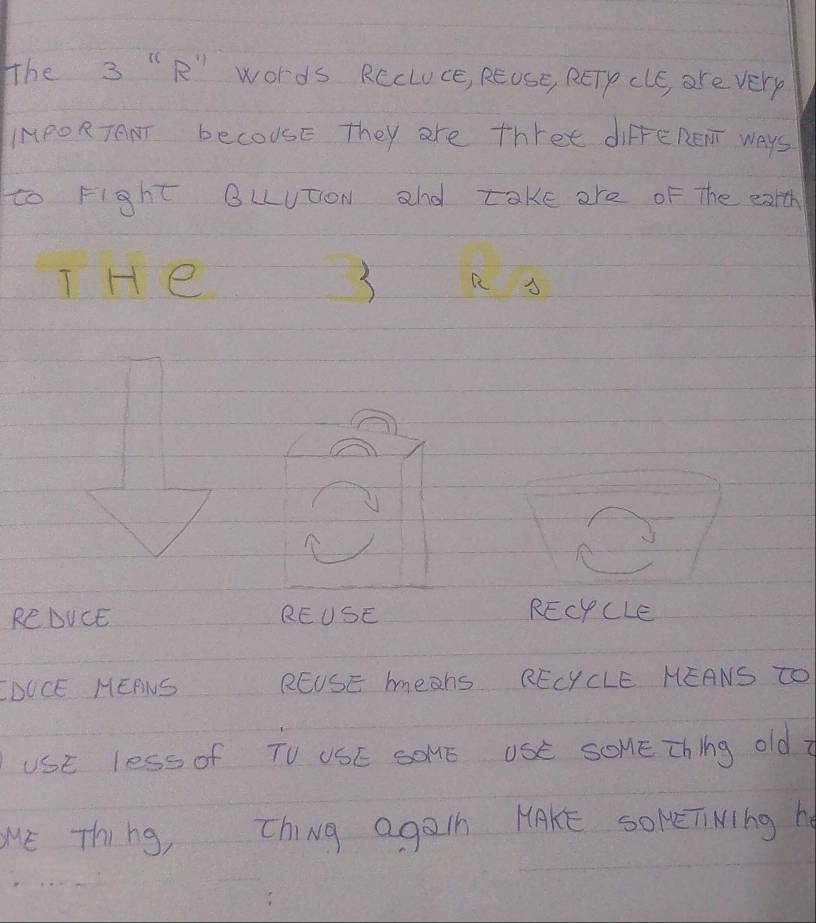 The 3 "R" words RECLUCE, REUSE, RETY CLE, are very
IMPORTANT becouse They are three dIFFERENT WAYS
to Fight BLLUTION and take are of The earth
THe 3 Rs
REDUCE REUSE RECYCLE
EDUCE MEANS REUSE means RECYCLE MEANS TO
USE less of TU USE SOME USE SOME thing old
OME Thing, thing again MAKE SOMETINING